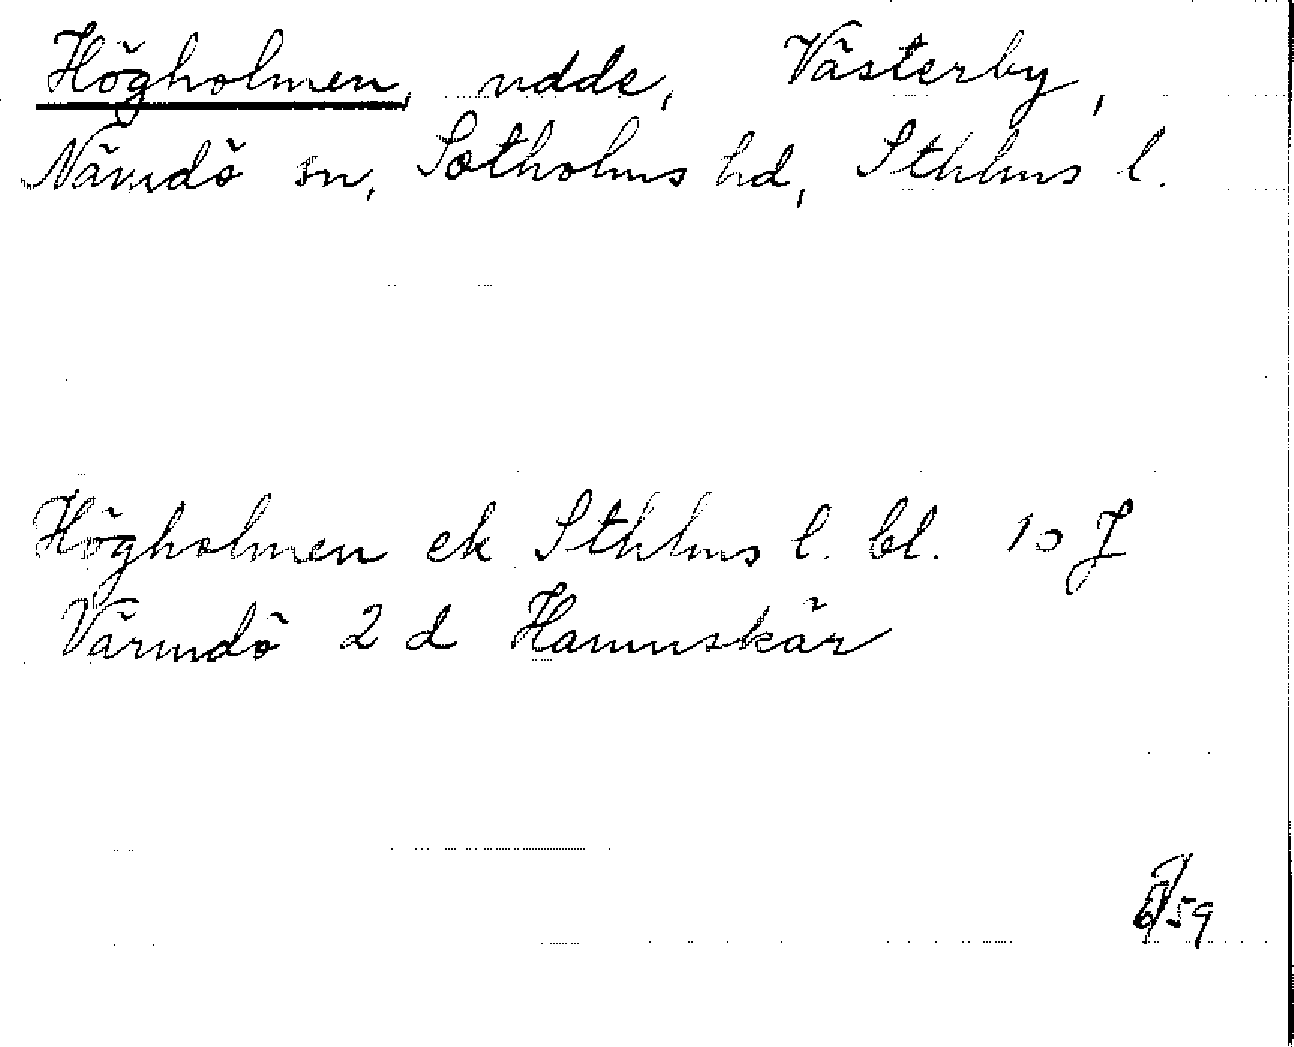 Högholmen, udde, Västerby,
Nämdö sn, Sotholms hd, Sthlms l.
Högholmen ek Sthlms l. bl. 10 J
Värmdö 2 d Hamnskär
/59